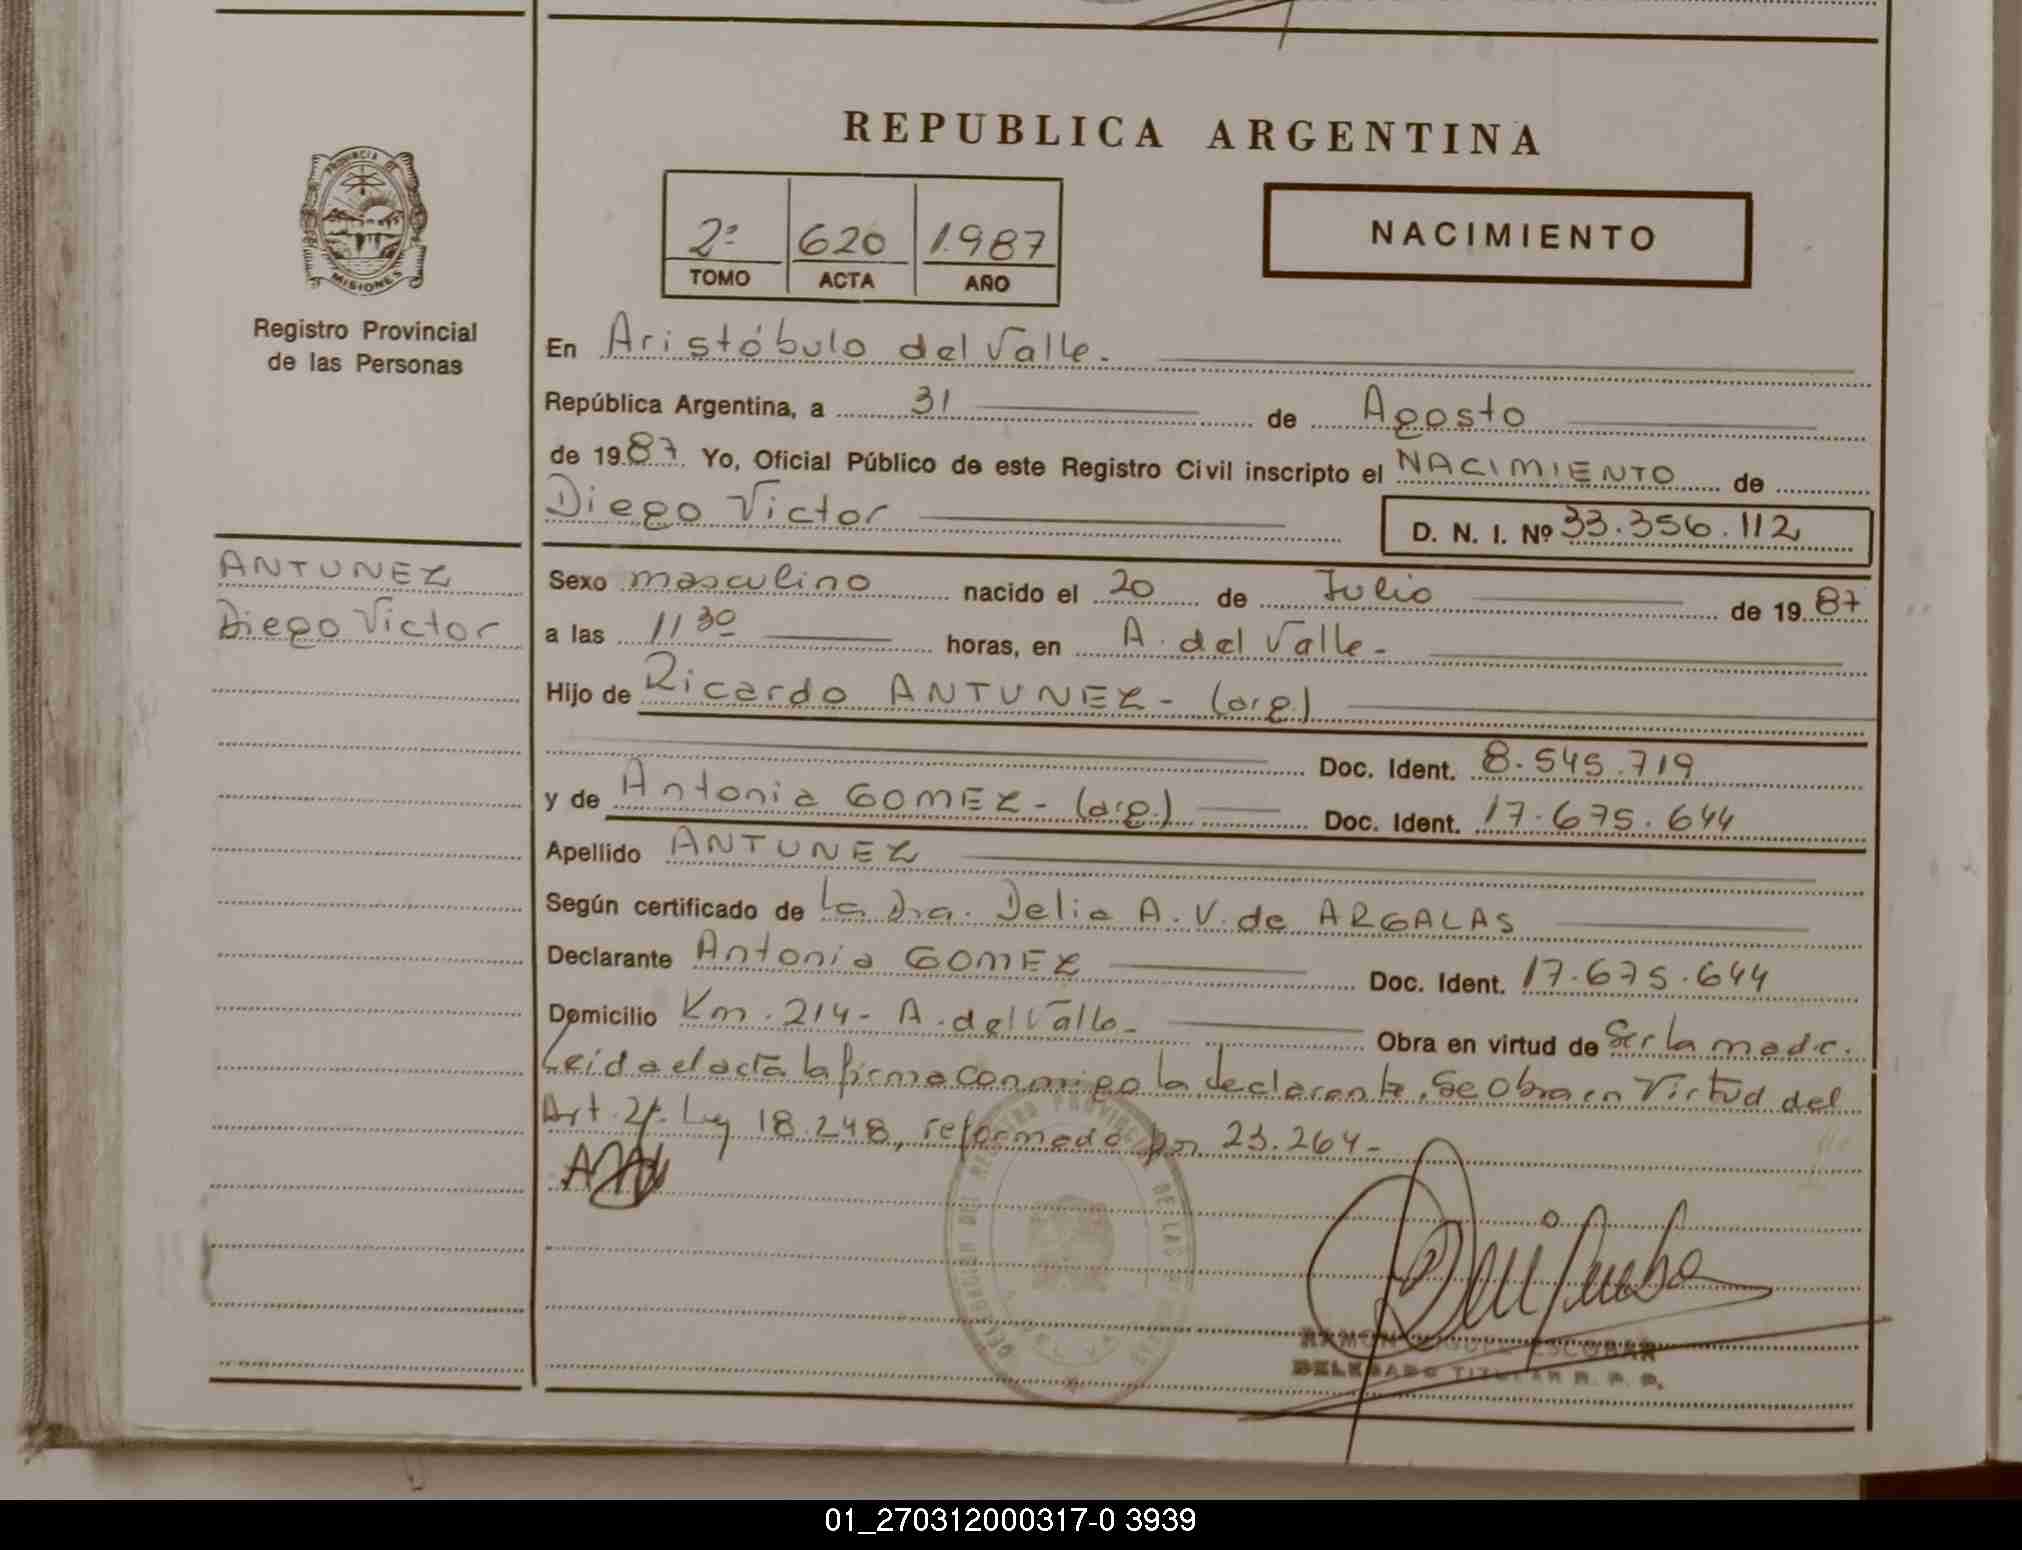 REPUBLICA ARGENTINA
PROVINCIA DE
MISIONES
Registro Provincial
de las Personas
2º 620 1.987
TOMO ACTA AÑO
NACIMIENTO
En Aristóbulo del Valle.
República Argentina, a 31 de Agosto
de 1987 Yo, Oficial Público de este Registro Civil inscripto el NACIMIENTO de
Diego Victor D. N. I. Nº 33.356.112
ANTUNEZ
Diego Victor
Sexo masculino nacido el 20 de Julio de 1987
a las 11 30 horas, en A. del Valle -
Hijo de Ricardo ANTUNEZ - (arg.)
Doc. Ident. 8.545.719
y de Antonia GOMEZ - (arg.) Doc. Ident. 17.675.644
Apellido ANTUNEZ
Según certificado de la Dra. Delia A. V. de ARGALAS
Declarante Antonia GOMEZ Doc. Ident. 17.675.644
Domicilio Km. 214 - A. del Valle - Obra en virtud de Ser la madre.
Leida el acta la firma conmigo la declarante. Se Obra en Virtud del
Art. 2º Ley 18.248, reformado por 23.264 -
DELEGACION DEL REGISTRO PROVINCIAL DE LAS
RAMON MIGUEL ESCOBAR
DELEGADO TITULAR R. P. P.
01_270312000317-0 3939